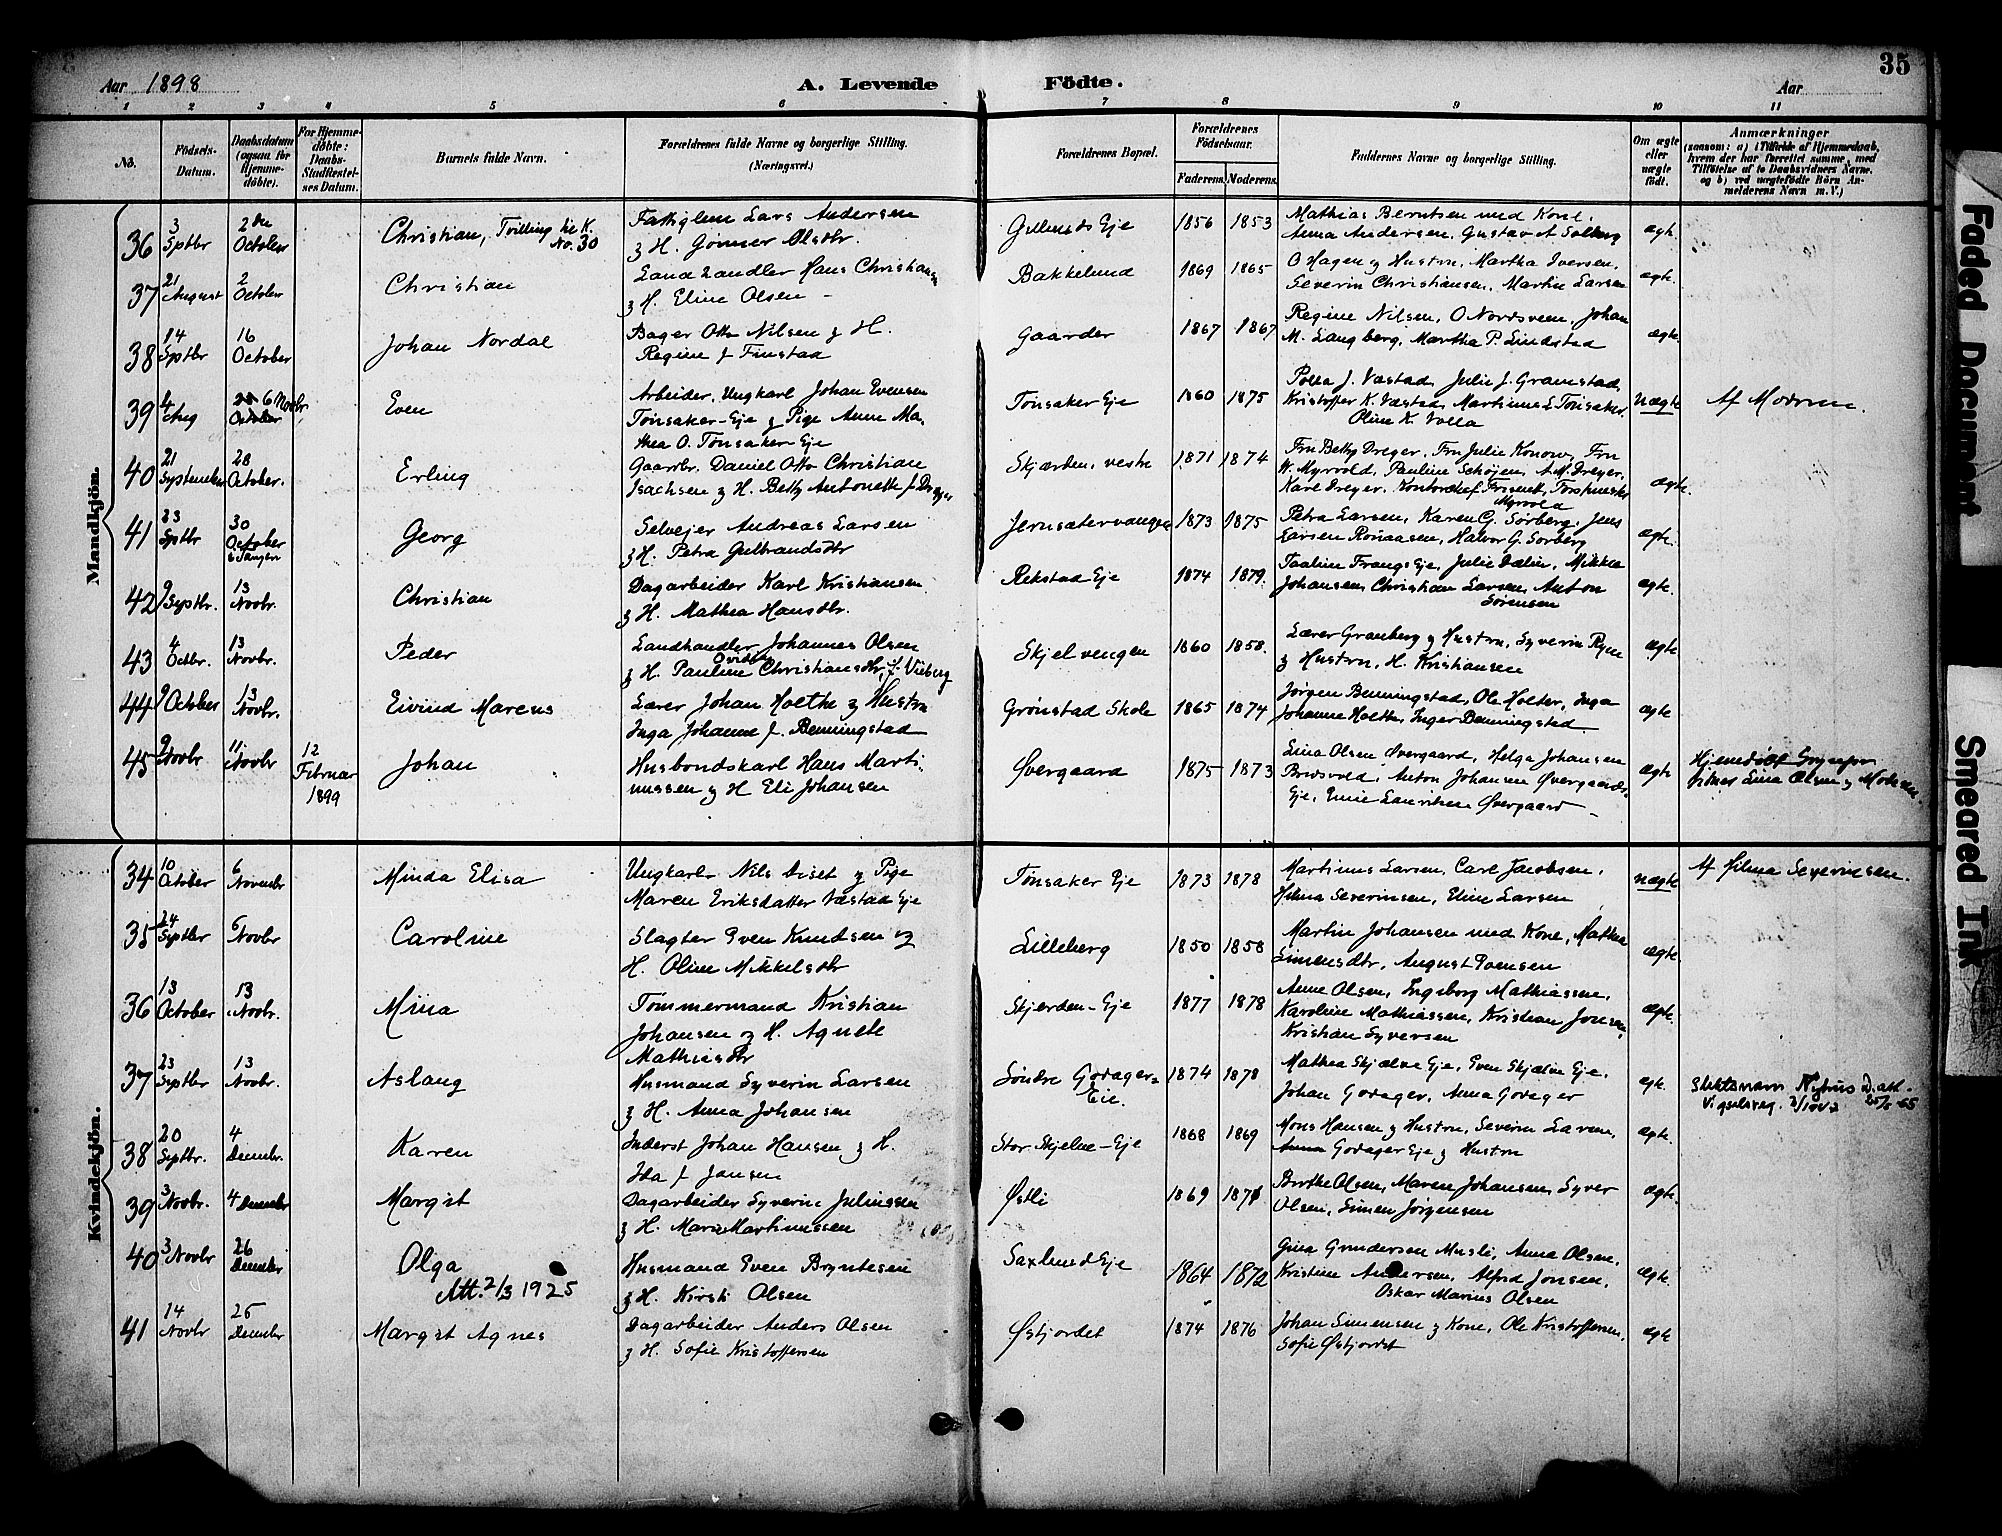 35
Aar 1898
A. Levende
Födte.
Aar
1 2 3 4 5 6 7 8 9 10 11
No.
Födsels-Datum.
Daabsdatum (ogsaa for Hjemmedöbte).
For Hjemmedöbte: Daabs-Stadfæstelses Datum.
Barnets fulde Navn.
Forældrenes fulde Navne og borgerlige Stilling.
(Næringsvei.)
Forældrenes Bopæl.
Forældrenes Födselsaar.
Faderens Moderens
Faddernes Navne og borgerlige Stilling.
Om ægte eller uægte födt.
Anmærkninger
(saasom: a) i Tilfælde af Hjemmedaab,
hvem der har forrettet samme, med
Tilföielse af to Daabsvidners Navne.
og b) ved uægtefödte Börn An-
melderens Navn m. V.)
Mandkjön.
36 3 Sptbr 2den October Christian, Tvilling til K. No. 30
Lars Andersen
& H. Gunner Olsdtr.
Eje 1856 1853
Mathias Berntsen med Kone,
Anna Andersen, Gustav A Solberg ægte.
37 21 August 2 October Christian
Landhandler Hans Christiansen
& H. Eline Olsen -
Bakkelund 1869 1865
O Hagen & Hustru, Martha Iversen,
Severin Christiansen, Martin Larsen ægte.
38 14 Sptbr 16 October Johan Nordal
Bager Otto Nilsen & H.
Regine f Finstad
Gaarder 1867 1867
Regine Nilsen, O Nordsveen, Johan
M. Langberg, Martha P. Lindstad ægte.
39 4 Aug 6 Novbr. October Even
Arbeider, Ungkarl Johan Evensen
Tønsaker-Eje & Pige Anne Ma-
thea O. Tønsaker-Eje
Tønsaker Eje 1860 1875
J. Væstad, Julie J. Gravestad,
Kristoffer K. Væstad, Martinus L Tønsaker,
Oline K. Volla
uægte Af Moderen.
40 21 September 28 October. Erling
Gaardbr. Daniel Otto Christian
Isachsen & H. Betty Antonette f. Dreyer
Skjærden, vestre 1871 1874
Fru Betty Dreyer, Fru Julie Konow, Fru
W. Myrvold, Pauline Schøyen, A. M. Dreyer,
Karl Dreyer, Kontorchef
Myrvold ægte.
41 23 Sptbr 30 October Georg
Selvejer Andreas Larsen
& H. Petra Gulbrandsdtr
1873 1875
Petra Larsen, Karen G. Sørberg, Jens
Larsen Rønaasen, Halvor G. Sørberg ægte.
42 9 Septbr. 13 Novbr. Christian
Dagarbeider Karl Kristiansen
& H. Mathea Hansdtr.
Rekstad Eje 1874 1879.
Eje, Julie Dælin, Mikkel
Johansen, Christian Larsen, Anton
Sørensen ægte.
43 4 Octbr. 13 Novbr. Peder
Landhandler Johannes Olsen
& H. Pauline Christiansdtr, f. Viberg
Skjelvengen 1860 1858.
Lærer Granberg & Hustru, Syverin Ryen
& Hustru, H. Kristiansen ægte
44 9 October 13 Novbr. Eivind Marcus
Lærer Johan Holthe & Hustru
Inga Johanne f. Benningstad
Grønstad Skole 1865 1874
Jørgen Benningstad, Ole Holter, Inga
Johanne Holter, Inger Benningstad ægte
45 9 Novbr 11. Novbr 12 Februar 1899 Johan
Husbondskarl Hans Marti-
nussen & H Eli Johansen
Øvergaard 1875 1873
Lina Olsen Øvergaard, Helga Johansen
Bredsvold, Anton Johansen Øvergaards-
Eje, Emie Lauritsen Øvergaard ægte
Lina Olsen & Moderen.
Kvindekjön.
34 10 October 6 Novembr Minda Elisa
Ungkarl Nils Diset & Pige
Maren Eriksdatter Væstad Eje
Tønsaker Eje 1873 1878
Martinus Larsen, Carl Jacobsen,
Hilma Severinsen, Eline Larsen
uægte Af Hilma Severinsen.
35 24 Septbr 6 Novbr Caroline
Slagter Even Knudsen og
H. Oline Mikkelsdtr
Lilleberg 1850 1858
Martin Johansen med Kone, Mathea
Simensdtr, August Evensen ægte.
36 13 October 13 Novbr. Mina
Tømmermand Kristian
Johansen og H. Agnete
Mathiesdtr
Skjerden-Eje 1877 1878
Anne Olsen, Ingeborg Mathiassen,
Karoline Mathiassen, Kristian Jonsen,
Kristian Syversen ægte.
37 23 Septbr 13 Novbr. Aslaug
Husmand Syverin Larsen
& H. Anna Johansen
Søndre Godager-
Eie. 1874 1878
Mathea Skjælve Eje, Even Skjælve Eje,
Johan Godager, Anna Godager ægte.
Slektsnavn Nyhus D. att.
Vigselsreg.
38 20 Septbr. 4 Decembr. Karen
Inderst Johan Hansen & H.
Ida f Jansen
Stor Skjelve-Eje 1868 1869
Mons Hansen & Hustru, Severin Larsen,
Godager Eje & Hustru ægte.
39 3 Novbr. 4 Decembr Margit
Dagarbeider Syverin Juliussen
& H. Maria Martinussen
Østli 1869 1871
Berthe Olsen, Maren Johansen, Syver
Olsen, Simen Jørgensen ægte.
40 3 Novbr 26 Decembr Olga
Att. 2/3 1925
Husmand Even Bryntesen
& H. Kirsti Olsen
Saxlund Eje 1864 1872
Gina Gundersen Musli, Anna Olsen,
Kristine Andersen, Alfred Jonsen,
Oskar Marius Olsen ægte.
41 14 Novbr 26 Decembr Margit Agnes
Dagarbeider Anders Olsen
& H. Sofie Kristoffersen
Østjordet 1874 1876
Johan Simensen & Kone, Ole Kristoffersen,
Sofie Østjordet ægte
Faded Document
Smeared Ink